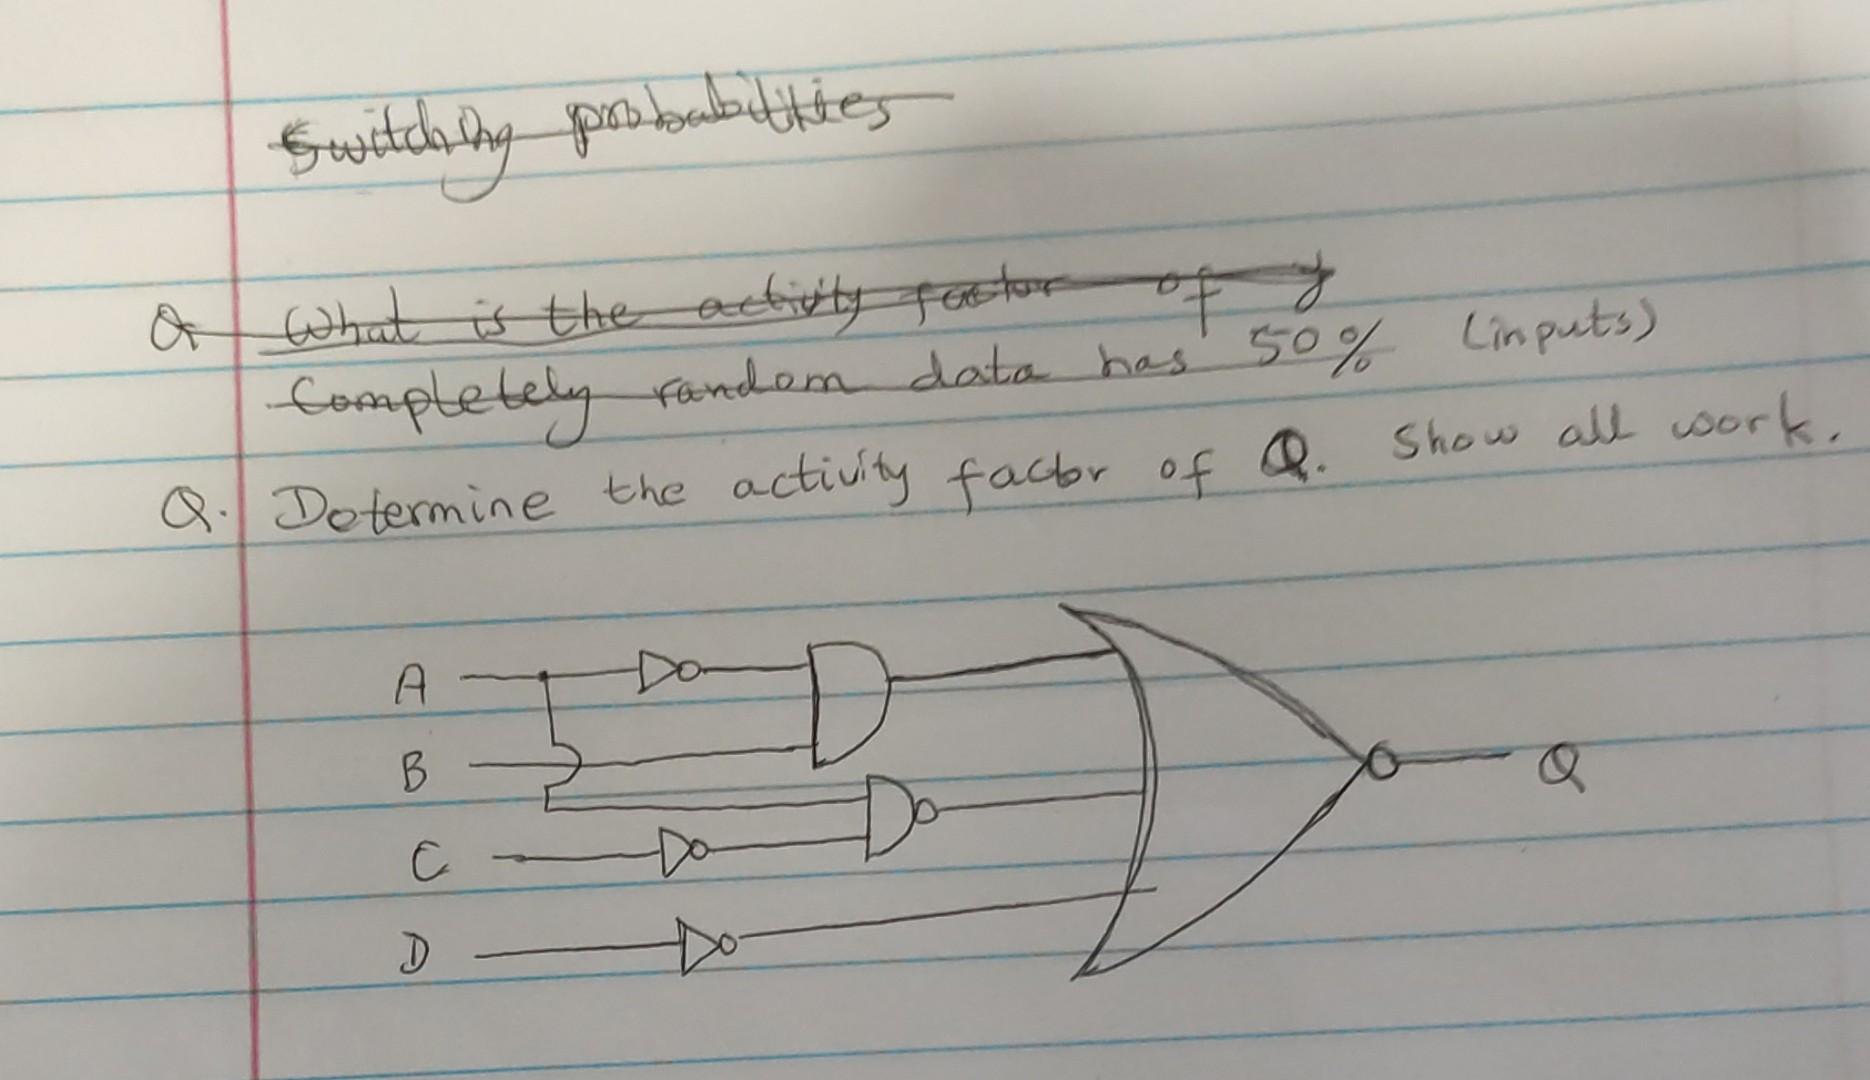 Switching probabilities
Q What is the activity factor of y
Completely random data has 50% (inputs)
Q. Determine the activity factor of Q. Show all work.
A
B
Q
C
D